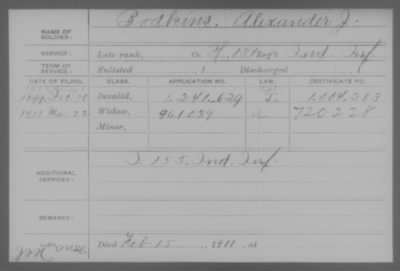 NAME OF SOLDIER: Bodkins, Alexander J.
SERVICE: Late rank, Co. Reg't Ind. Inf.
TERM OF SERVICE: Enlisted , 1 Discharged , 1
DATE OF FILING. CLASS. APPLICATION NO. LAW. CERTIFICATE NO.
Invalid, 1,241,629
1911 Widow, 961039 720228
Minor,
ADDITIONAL SERVICES: 155 Ind. Inf.
REMARKS:
Died Feb 15 , 1911, at